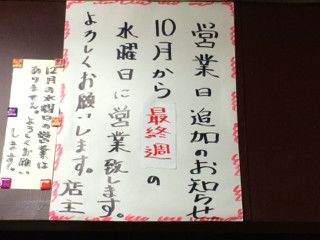 営業日追加のお知らせ
10月から最終週の
水曜日に営業致します。
よろしくお願いします。店主
12月の水曜日の営業は
ありません。よろしくお願い
します。